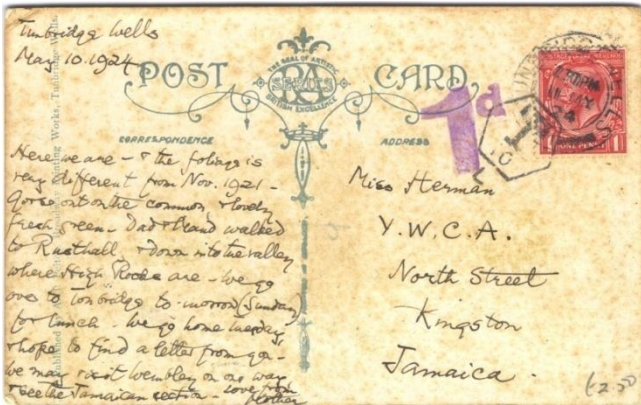 Tunbridge Wells
May 10. 1924
POST CARD
THE SEAL OF ARTISTIC
BRITISH EXCELLENCE
CORRESPONDENCE
ADDRESS
1d
ONE PENNY
Here we are - & the foliage is
very different from Nov. 1921 -
Gorse out on the common & lovely
fresh green - Dad & I and walked
to Rusthall & down into the valley
where High Rocks are - We go
over to Tonbridge to-morrow (Sunday)
for lunch - We go home Tuesday
& hope to find a letter from you -
we may visit Wembley on our way
& see the Jamaican section - Love from
Mother
Miss Herman
Y.W.C.A.
North Street
Kingston
Jamaica.